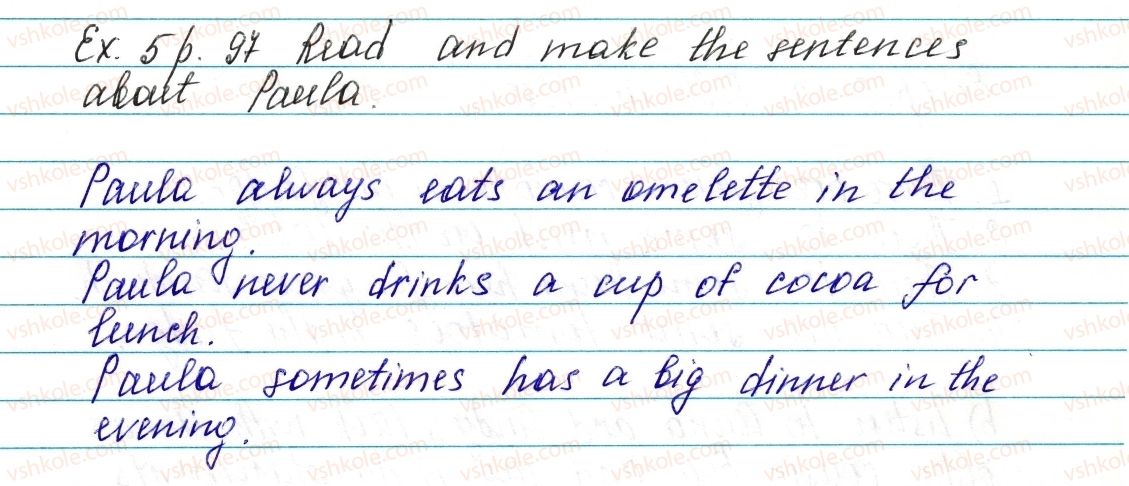 Ex. 5 p. 97 Read and make the sentences
about Paula.
Paula always eats an omelette in the
morning.
Paula never drinks a cup of cocoa for
lunch.
Paula sometimes has a big dinner in the
evening.